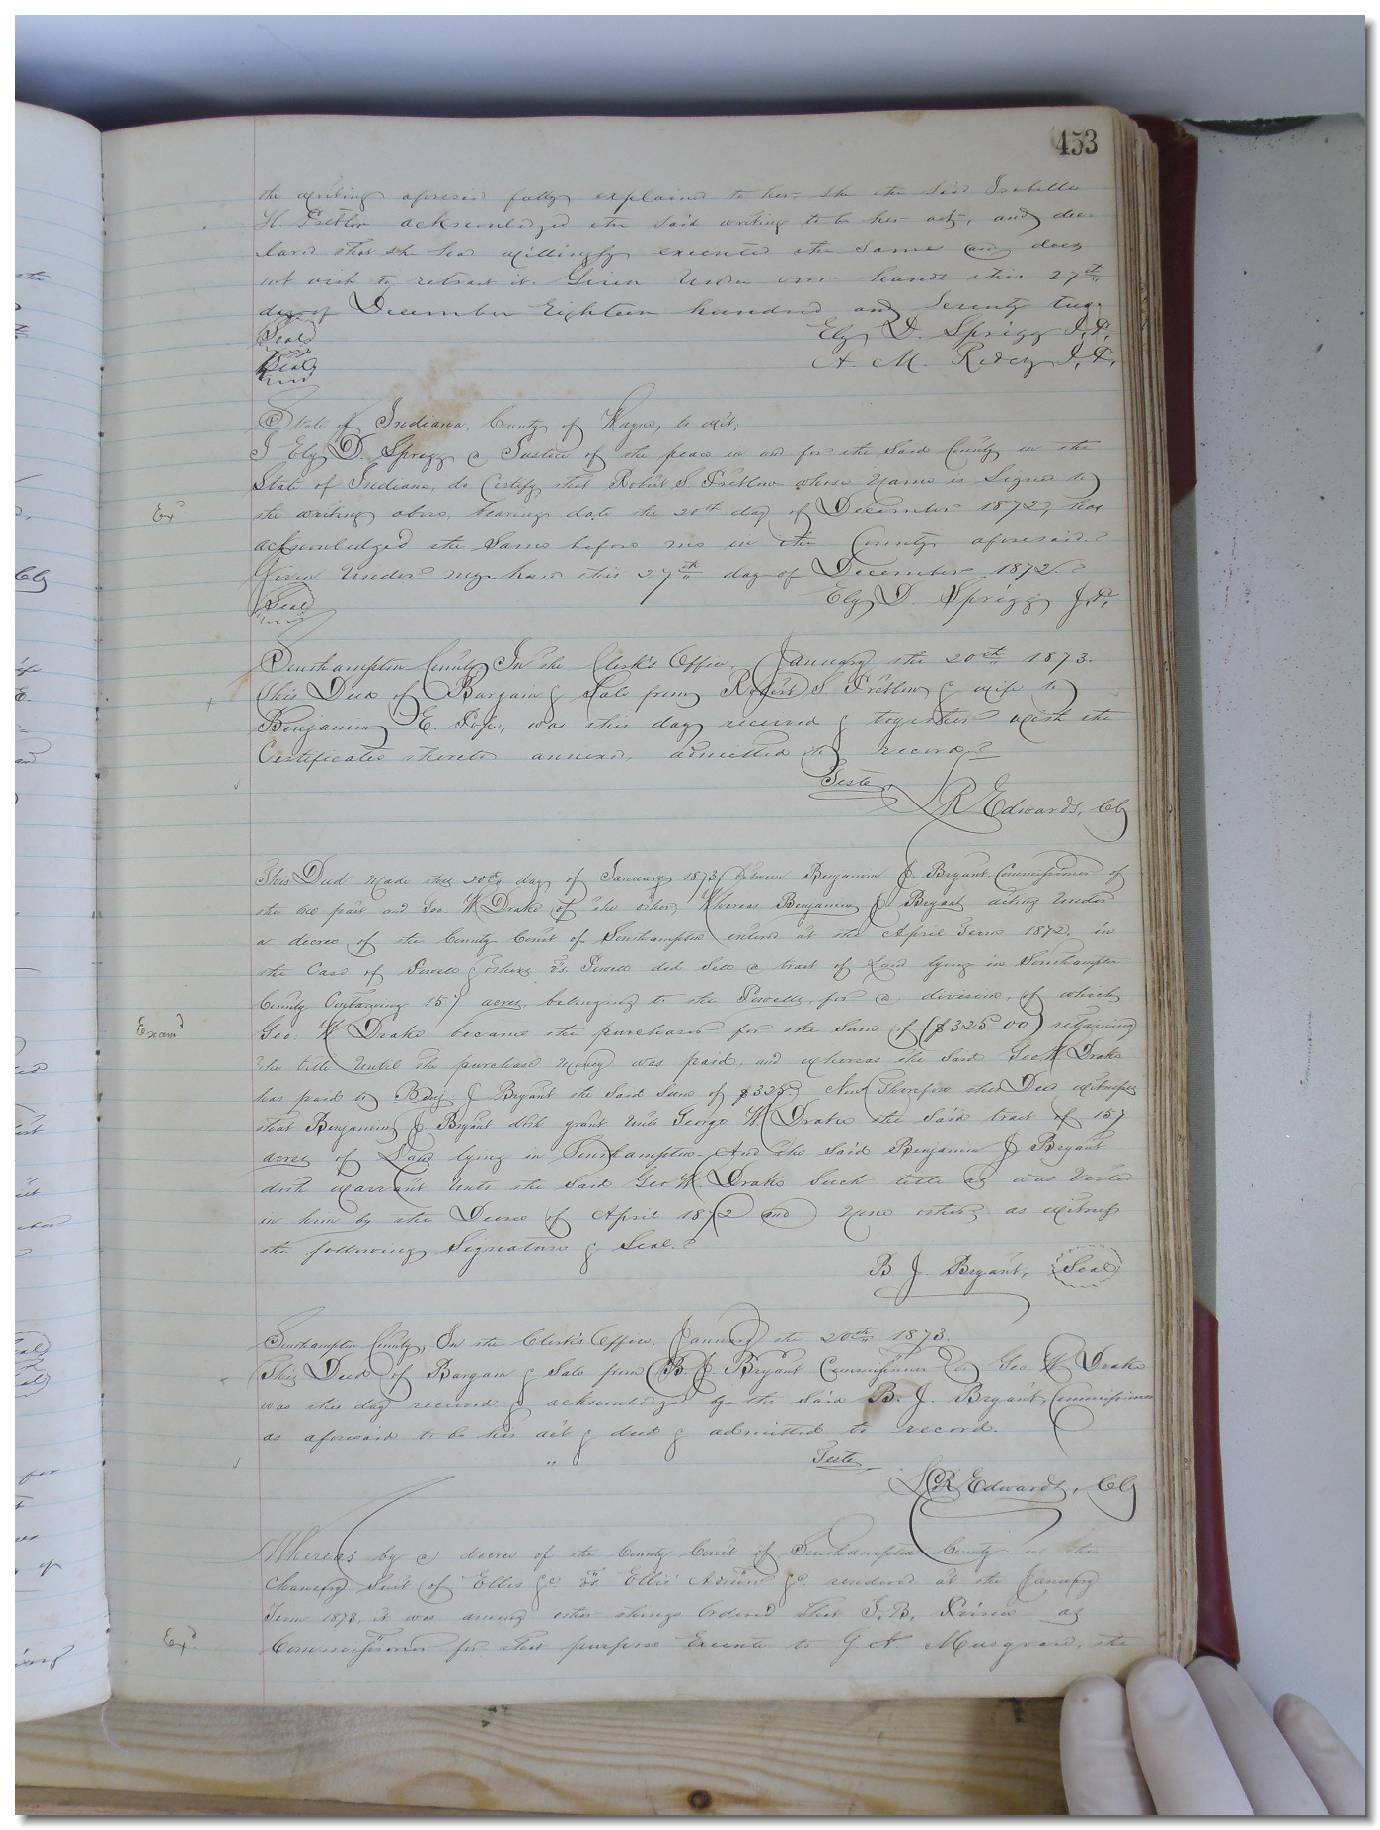 453
the writing aforesaid fully explained to her, she the said Isabella
H. Pretlow acknowledged the said writing to be her act, and dec-
lared that she had willingly executed the same and does
not wish to retract it. Given under our hands this 27th
day of December Eighteen hundred and Seventy two.
Seal Ely D. Sprigg J.P.
Seal A. M. J.P.
State of Indiana, County of Wayne, to wit,
I Ely D. Sprigg a Justice of the peace in and for the said County in the
State of Indiana, do Certify that Robert S. Pretlow whose name is signed to
Exd the writing above, bearing date the 20th day of December 1872, has
acknowledged the same before me in the County aforesaid.
Given under my hand this 27th day of December 1872.
Seal Ely D. Sprigg J.P.
Southampton County, In the Clerk's Office, January the 20th 1873.
This Deed of Bargain & Sale from Robert S. Pretlow & wife to
Benjamin E. Pope, was this day received & together with the
Certificates thereto annexed, admitted to record
Teste,
L R Edwards, Clk
This Deed made this 20th day of January 1873 between Benjamin J. Bryant Commissioner of
the one part and Geo W Drake of the other, Whereas Benjamin J. Bryant acting under
a decree of the County Court of Southampton entered at the April Term 1872, in
the Case of Powell & others vs. Powell did sell a tract of Land lying in Southampton
County Containing 157 acres, belonging to the Powells, for a division, of which
Examd Geo. W Drake became the purchaser for the sum of ($325.00) retaining
the title until the purchase money was paid, and whereas the said Geo W Drake
has paid to Benj. J Bryant the said sum of $325. Now Therefore this Deed witnesses
that Benjamin J Bryant doth grant unto George W Drake the said tract of 157
acres of Land lying in Southampton. And the said Benjamin J Bryant
doth warrant unto the said Geo W Drake such title as was vested
in him by the Decree of April 1872 and none other, as witness
the following signature & seal.
B. J. Bryant, Seal
Southampton County, In the Clerk's Office, January the 20th 1873.
This Deed of Bargain & Sale from B. J. Bryant Commissioner to Geo W Drake
was this day received & acknowledged by the said B. J. Bryant, Commissioner
as aforesaid to be his act & deed & admitted to record.
Teste
L R Edwards, Clk
Whereas by a decree of the County Court of Southampton County in the
Chancery Suit of Ellis &c vs. Ellis' Admr &c. rendered at the January
Term 1873, it was among other things Ordered that J. B. Prince as
Exd Commissioner for that purpose Execute to G. N. Musgrave, the